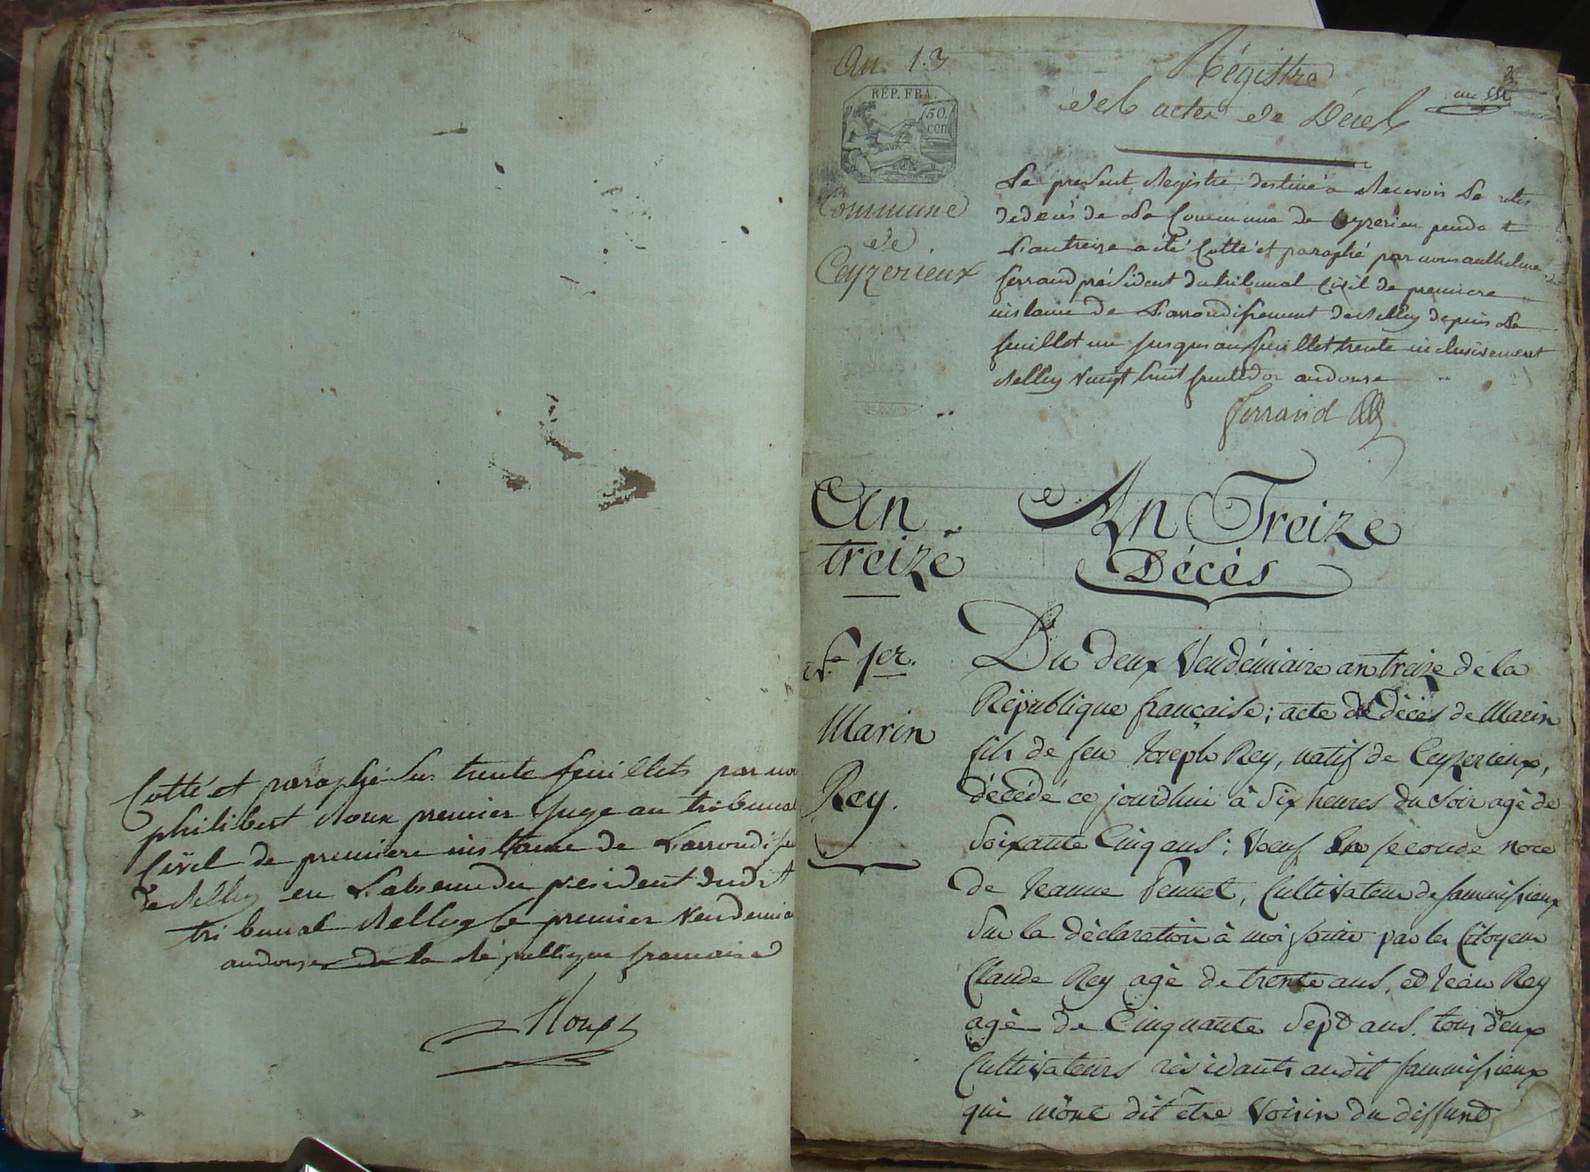 Cotté et paraphé sur trente feuillets par nou
philibert Roux premier Juge au tribunal
Civil de premiere instance de Larrondisse
de Belley en Labsence du president dudit
tribunal Belley le premier vendemia
an douze de la République francaise
Roux
An. 13
RÉP. FRA.
50.
cen
Régistre
des actes de Décès
Commune
de
Ceyzerieux
Le present Registre destiné a Recevoir Le actes
de décés de La Commune de Ceyzerieu penda t
L'an treize a été Cotté et paraphé par nous anthelme
ferrand président du tribunal Civil de premiere
instance de Larrondissement de Belley depuis Le
feuillet un Jusques au feuillet trente inclusivement
Belley vingt huit fructidor an douze
Ferrand
An
treize
An Treize
Décès
N.º 1er.
Marin
Rey.
Du deux Vendémiaire an treize de la
République française; acte de décès de Marin
fils de feu Joseph Rey, natif de Ceyzerieux,
décédé ce jourdhui à Six heures du soir agè de
Soixante Cinq ans; Vœuf en seconde noce
de Jeanne Pennet, Cultivateur de Sammissieux
Sur la déclaration à moi faitte par les Citoyens
Claude Rey agè de trente ans, et Jean Rey
agè de Cinquante Sept ans. tous deux
Cultivateurs résidants audit Sammissieux
qui m'ont dit être Voisin du deffunt